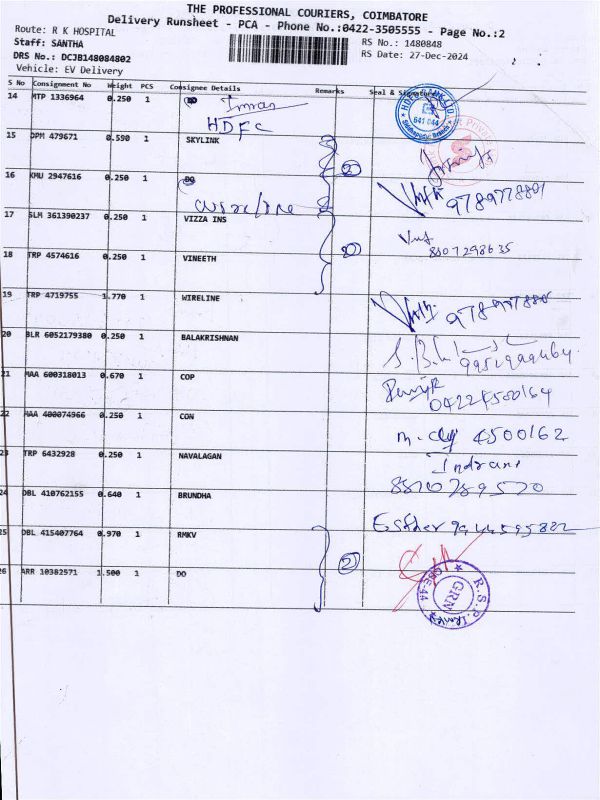 THE PROFESSIONAL COURIERS, COIMBATORE
Delivery Runsheet - PCA - Phone No.:0422-3505555 - Page No.:2
Route: R K HOSPITAL
Staff: SANTHA
RS No.: 1480848
DRS No.: DCJB148084802
RS Date: 27-Dec-2024
Vehicle: EV Delivery
S No Consignment No Weight PCS Consignee Details Remarks Seal & Signature
14 MTP 1336964 0.250 1 DO Imran
HDFC
641 044
15 DPM 479671 0.590 1 SKYLINK
2
16 KMU 2947616 0.250 1 DO
9789778801
wireline
17 SLM 361390237 0.250 1 VIZZA INS
8807298635
18 TRP 4574616 0.250 1 VINEETH
19 TRP 4719755 1.770 1 WIRELINE
20 BLR 6052179380 0.250 1 BALAKRISHNAN
21 MAA 600318013 0.670 1 COP
04224500164
22 MAA 400074966 0.250 1 CON
4500162
23 TRP 6432928 0.250 1 NAVALAGAN
Indrani
8870789570
24 DBL 410762155 0.640 1 BRUNDHA
Esther 9944595822
25 DBL 415407764 0.970 1 RMKV
2
26 ARR 10382571 1.500 1 DO
GRN
CBE-44